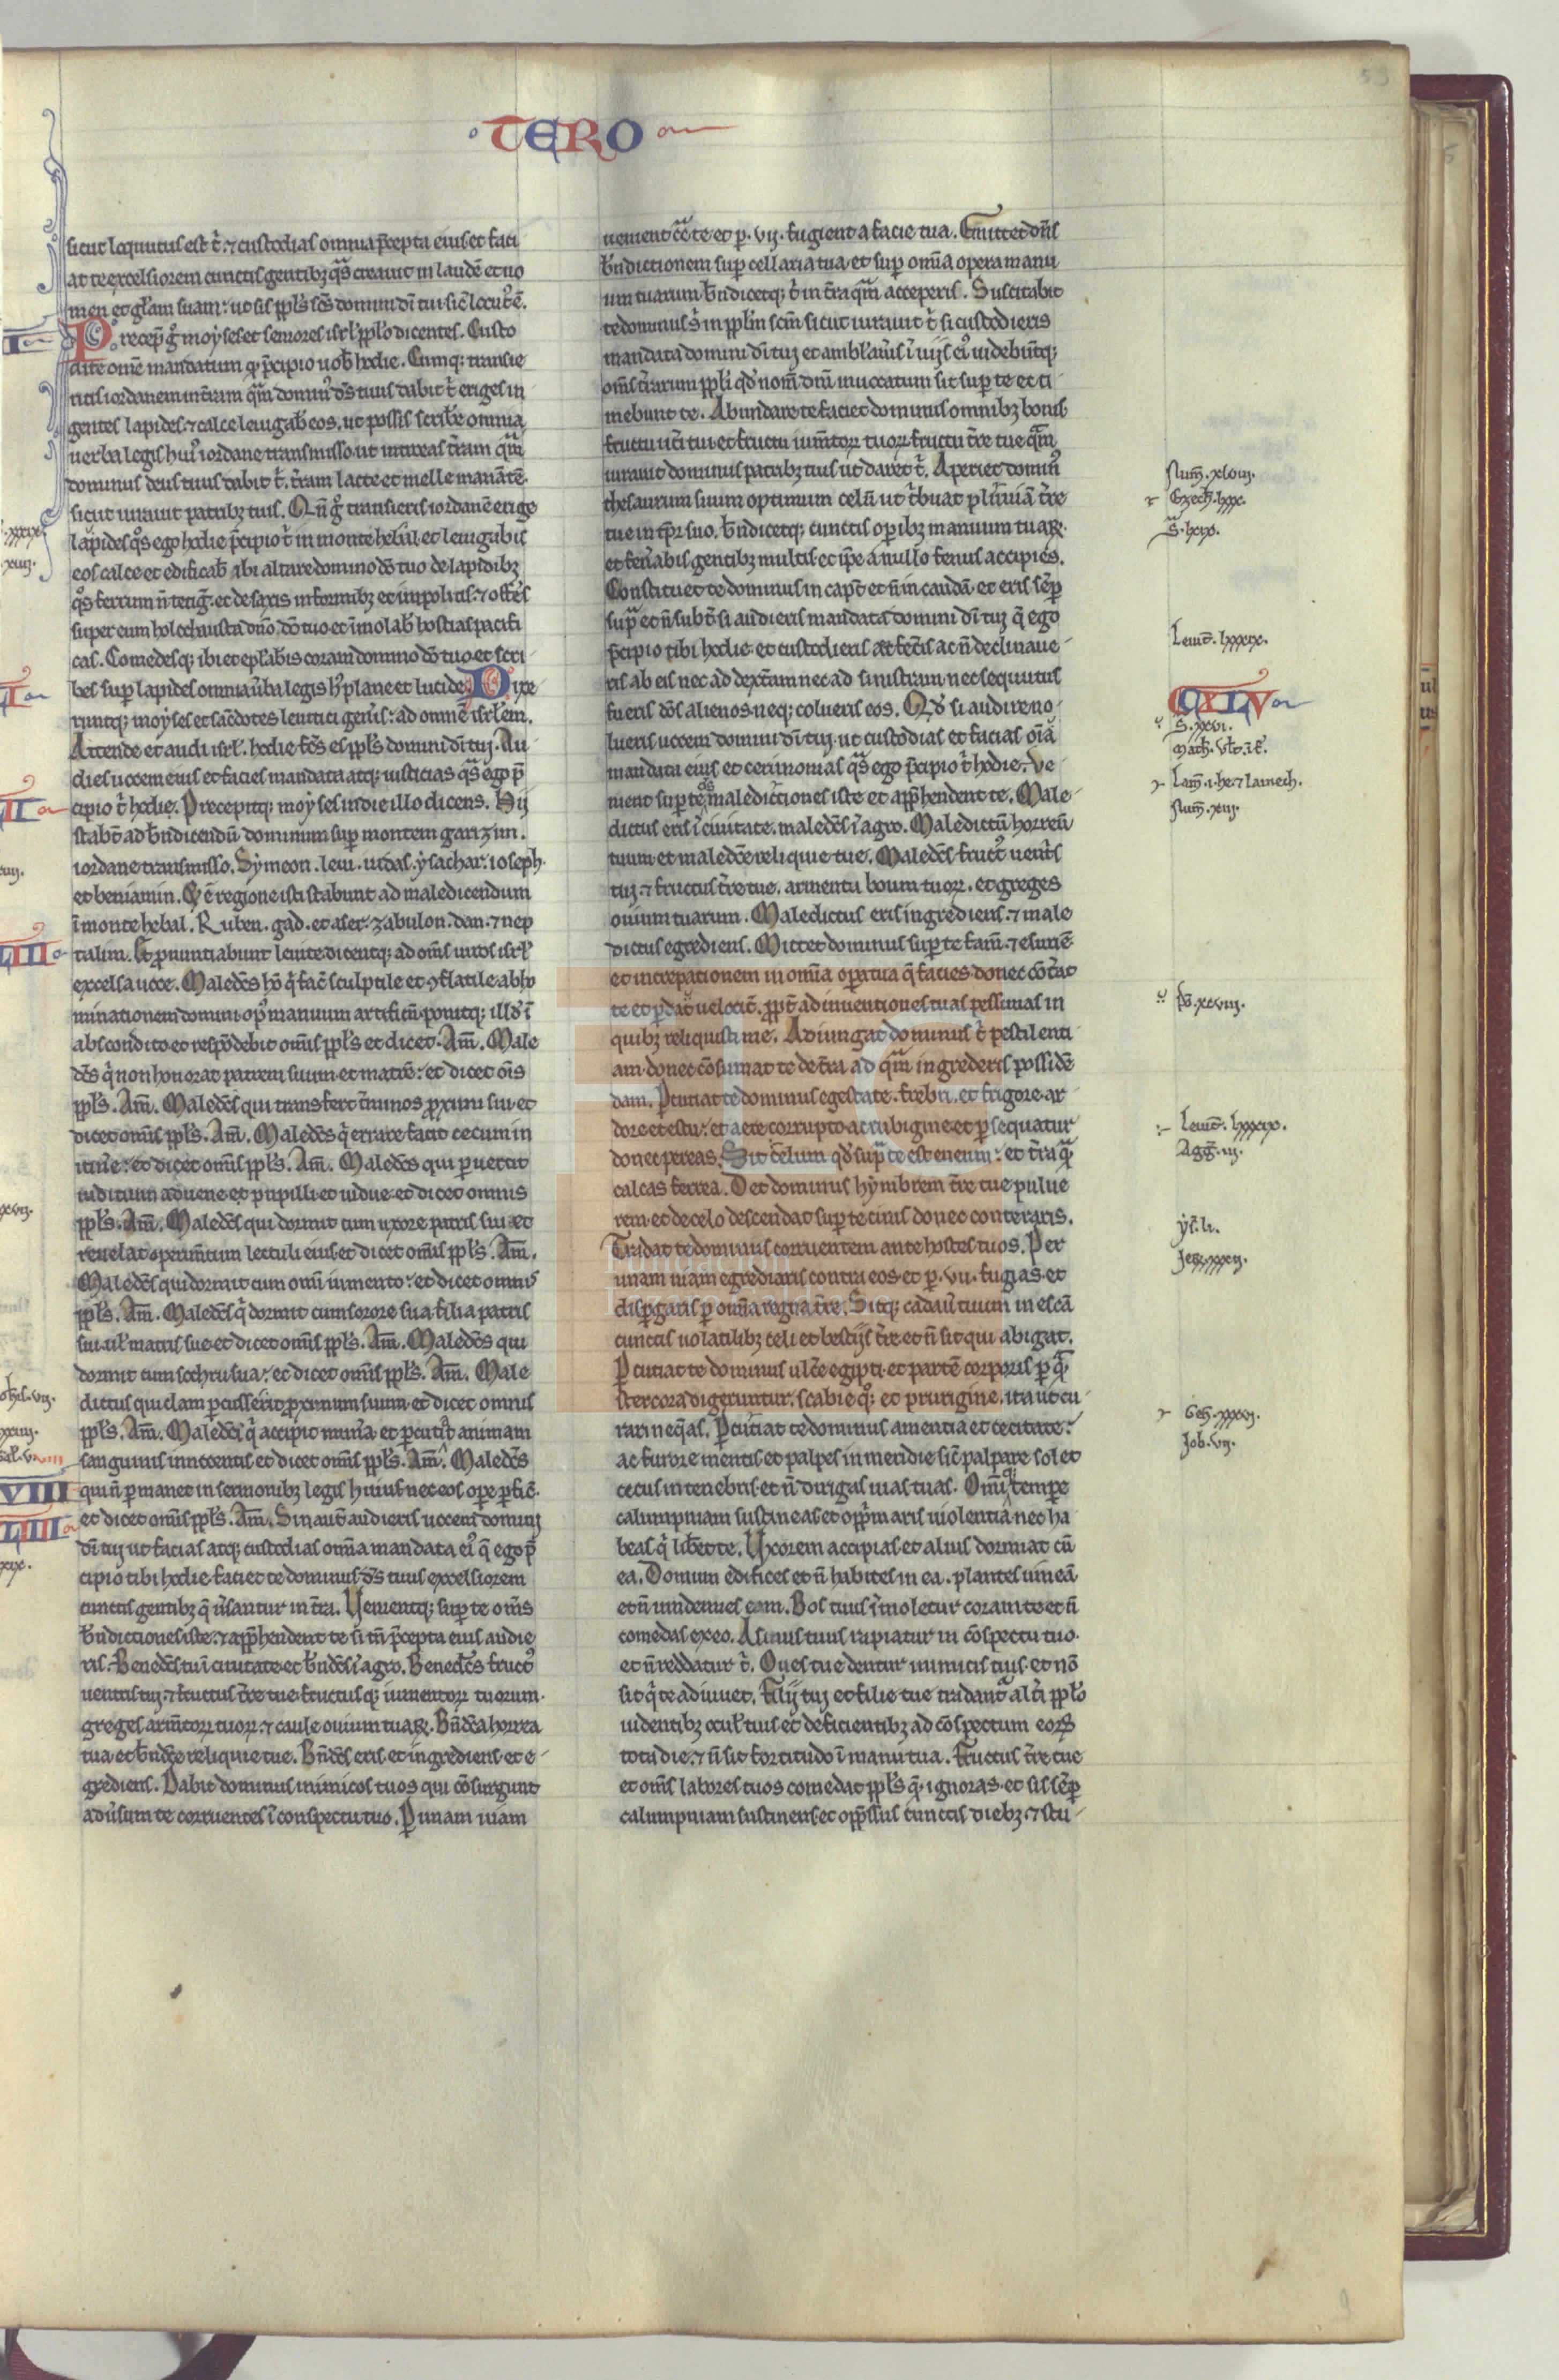 TERO
sicut loqutus est t̄. ⁊ custodias omnia p̄cepta eius et faci
at te excelsiorem cunctis gentibꝫ q̄s creauit in laudē et no
men et gl̄am suam: ut sis ppl̄s sc̄s domini dī tui sic̄ locut᷒ ē.
Precep̄ g̊ moyses et seniores isrl̄ ppl̄o dicentes. Custo
dite om̄e mandatum qͥ p̄cipio uob̄ hodie. Cumqꝫ transie
ritis iordanem in t̄ram quā domin᷒ ds̄ tuus dabit t̄ eriges in
gentes lapides. ⁊ calce leuigab̄ eos. ut possis scrib̄e omnia
uerba legis hui᷒ iordane transmisso. ut introeas t̄ram quā
dominus deus tuus dabit t̄. t̄ram lacte et melle manātē.
sicut iurauit patribꝫ tuis. Qn̄ g̊ transieris iordanē erige
lapides qͦs ego hodie p̄cipio t̄ in monte hebal. et leuigabis
eos calce et edificab̄ ibi altare domino dō tuo de lapidibꝫ
qͦs ferrum n̄ tetiḡ. et de saxis informibꝫ et impolitis. ⁊ off̄es
super eum holochausta dn̄o dō tuo et īmolab̄ hostias pacifi
cas. Comedesqꝫ ibi et epl̄abis coram domino dō tuo. et scri
bes sup̄ lapides omnia ūba legis h᷒ plane et lucide. Dixe
runtqꝫ moyses et sac̄dotes leuitici gen̄is: ad omnē isrl̄em.
Attende et audi isrl̄. hodie fc̄s es ppl̄s domini dī tui. Au
dies uocem eius et facies mandata atqꝫ iusticias q̄s ego p̄
cipio t̄ hodie. Precepitqꝫ moyses in die illo dicens. Hij
stabt̄ ad bn̄dicendū dominum sup̄ montem garizim.
iordane transmisso. Symeon. leui. iudas. ysachar. ioseph.
et beniamin. Et ē regione isti stabunt ad maledicendum
ī monte hebal. Ruben. gad. et aser. zabulon. dan. ⁊ nep
talim. Et pronuntiabunt leuite dicentqꝫ ad om̄s uiros isrl̄
excelsa uoce. Maledc̄s hō qͥ fac̄ sculptile et ꝯflatile abho
minationem domini. op᷒ manuum artificū. ponitqꝫ illd̄ ī
abscondito et respōdebit omis ppl̄s et dicet. Am̄. Male
dc̄s qͥ non honorat patrem suum et matrē: et dicet om̄is
ppl̄s. Am̄. Maledc̄s qui transfert t̄minos ꝓximi sui et
dicet omis ppl̄s. Am̄. Maledc̄s qͥ errare facit cecum in
itin̄e: et dicet omis ppl̄s. Am̄. Maledc̄s qui ꝑuertit
iuditium aduene et pupilli et uidue. et dicet omnis
ppl̄s. Am̄. Maledc̄s qui dormit cum uxore patris sui et
reuelat operim̄tum lectuli eius et dicet omis ppl̄s. Am̄.
Maledc̄s qui dormit cum omi iumento: et dicet omnis
ppl̄s. Am̄. Maledc̄s qͥ dormit cum sorore sua filia patris
sui. ul̄ matris sue et dicet omis ppl̄s. Am̄. Maledc̄s qui
dormit cum sochru sua: et dicet omis ppl̄s. Am̄. Male
dictus qui clam ꝑcusserit ꝓximum suum et dicet omnis
ppl̄s. Am̄. Maledc̄s qͥ accipit mun̄a et ꝑcutit animam
sanguinis innocentis et dicet omis ppl̄s. Am̄. Maledc̄s
qui n̄ ꝑmanet in sermonibꝫ legis huius nec eos oꝑe ꝑfic̄.
et dicet omis ppl̄s. Am̄. Sin aut̄ audieris uocem domini
dī tui ut facias atqꝫ custodias om̄ia mandata ei᷒ q̄ ego p̄
cipio tibi hodie. faciet te dominus ds̄ tuus excelsiorem
cunctis gentibꝫ q̄ ūsantur in t̄ra. Uenientqꝫ sup̄ te om̄s
bn̄dictiones iste. ⁊ app̄hendent te si tn̄ p̄cepta eius audie
ris. Benedc̄s tu ī ciuitate et bn̄dc̄s ī agro. Benedc̄s fruct᷒
uentris tui. ⁊ fructus t̄re tue. fructusqꝫ iumentoꝝ tuorum.
greges arm̄toꝝ tuoꝝ. ⁊ caule ouium tuaꝝ. Bn̄dc̄a horrea
tua et bn̄dc̄e reliquie tue. Bn̄dc̄s eris et ingrediens et e-
grediens. Dabit dominus inimicos tuos qui cōsurgunt
adūsum te corruentes ī conspectu tuo. Ꝑ unam uiam
uenient cͣ te et ꝑ. vij. fugient a facie tua. Emittet dn̄s
bn̄dictionem sup̄ cellaria tua et sup̄ om̄ia opera manu
um tuarum bn̄dicetqꝫ t̄ in t̄ra quā acceperis. Suscitabit
te dominus s̄ in ppl̄m scm̄ sicut iurauit t̄ si custodieris
mandata domini dī tui et ambl̄aūis ī uijs ei᷒ uidebūtqꝫ
om̄s t̄rarum ppl̄i qd̄ nom̄ dn̄i inuocatum sit sup̄ te et ti
mebunt te. Abundare te faciet dominus omnibꝫ bonis
fructu ut̄i tui et fructu ium̄toꝝ tuoꝝ fructu t̄re tue quā
iurauit dominus patribꝫ tuis ut daret t̄. Aperiet domin᷒
thesaurum suum optimum celū ut t̄buat pluuiā t̄re
tue in tp̄r suo. bn̄dicetqꝫ cunctis oꝑibꝫ manuum tuaꝝ.
et fen̄abis gentibꝫ multis. et ip̄e a nullo fenus accipies.
Constituet te dominus in capt̄ et n̄ in caudā. et eris sēp̄
sup̄ et n̄ subt̄ si audieris mandata domini dī tui q̄ ego
p̄cipio tibi hodie. et custodieris et fec̄is ac n̄ declinaue-
ris ab eis nec ad dext̄am nec ad sinistram. nec sequutus
fueris dōs alienos. neqꝫ colueris eos. Qd̄ si audire no-
lueris uocem domini dī tui. ut custodias et facias om̄ia
mandata eius et cerimonias q̄s ego p̄cipio t̄ hodie. Ve
nient sup̄ te os maledictiones iste et app̄hendent te. Male-
dictus eris ī ciuitate. maledc̄s ī agro. Maledictū horreū
tuum et maledc̄e reliquie tue. Maledc̄s fruct᷒ uent̄s
tui. ⁊ fructus t̄re tue. armenta boum tuoꝝ. et greges
ouium tuarum. Maledictus eris ingrediens. ⁊ male
dictus egrediens. Mittet dominus sup̄ te fam̄. ⁊ esuriē
et increpationem in om̄ia oꝑa tua q̄ facies donec cōt̄at
te et ꝑdat uelocit̄. ꝓpt̄ adinuentiones tuas pessimas in
quibꝫ reliquisti me. Adiungat dominus t̄ pestilenti
am donec cōsumat te de t̄ra ad quā ingrederis possidē
dam. Ꝑcutiat te dominus egestate. febri. et frigore. ar
dore et estu: et aere corrupto ac rubigine et ꝑsequatur
donec pereas. Sit celum qd̄ supͣ te est eneum: et t̄ra qͣ
calcas ferrea. Det dominus hymbrem t̄re tue pulue
rem. et de celo descendat sup̄ te cinis donec conteraris.
Tradat te dominus corruentem ante hostes tuos. Per
unam uiam egrediaris contra eos et ꝑ. vii. fugias. et
disꝑgaris ꝑ om̄ia regna t̄re. Sitqꝫ cadau̅ tuum in escā
cunctis uolatilibꝫ celi et bestijs t̄re. et n̄ sit qui abigat.
Ꝑcutiat te dominus ulc̄e egipti. et partē corporis ꝑ qͣ
stercora digeruntur. scabie qͦꝫ et prurigine. ita ut cu-
rari neq̄as. Ꝑcutiat te dominus amentia et cecitate:
ac furore mentis et palpes in meridie sic̄ palpare solet
cecus in tenebris. et n̄ dirigas uias tuas. Omni tempe
calumpniam sustineas et opp̄maris uiolentia nec ha
beas qͥ libet te. Uxorem accipias et alius dormiat cū
ea. Domum edifices et n̄ habites in ea. plantes uineā
et n̄ uindemies eam. Bos tuus īmoletur coram te et n̄
comedas ex eo. Asinus tuus rapiatur in cōspectu tuo.
et n̄ reddatur t̄. Oues tue dentur inimicis tuis. et nō
sit qͥ te adiuuet. Filij tui et filie tue tradantᷣ alt̄i ppl̄o
uidentibꝫ ocul̄ tuis et deficientibꝫ ad cōspectum eoꝝ
tota die. ⁊ n̄ sit fortitudo ī manu tua. Fructus t̄re tue
et om̄s labores tuos comedat ppl̄s qͥ ignoras. et sis sēp̄
calumpniam sustinens et opp̄ssus cunctis diebꝫ. ⁊ stu-
Num̄. xlviij.
Ezech̄. lxxx.
S. lxix.
Leuit̄. lxxxix.
CXLV
S. xxvi.
Math̄. vlt̄. i. f.
Lam̄. i. he. ⁊ lamech.
Num̄. xiij.
Ps̄. xcviij.
Leuit̄. lxxxix.
Agḡ. iij.
ys̄. li.
Jerꝫ. xxxij.
Gen̄. xxxij.
Job. vij.
VIII
LIIII
Fundación